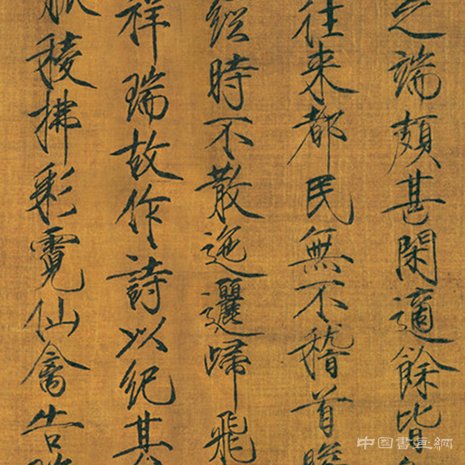 之端頗甚閑適餘皆
往來都民無不稽首瞻
經時不散迤邐歸飛
祥瑞故作詩以紀其
觚稜拂彩霓仙禽告瑞
中國書畫網